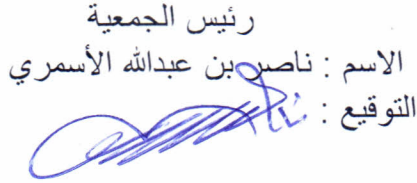 رئيس الجمعية
الاسم : ناصر بن عبدالله الأسمري
التوقيع :